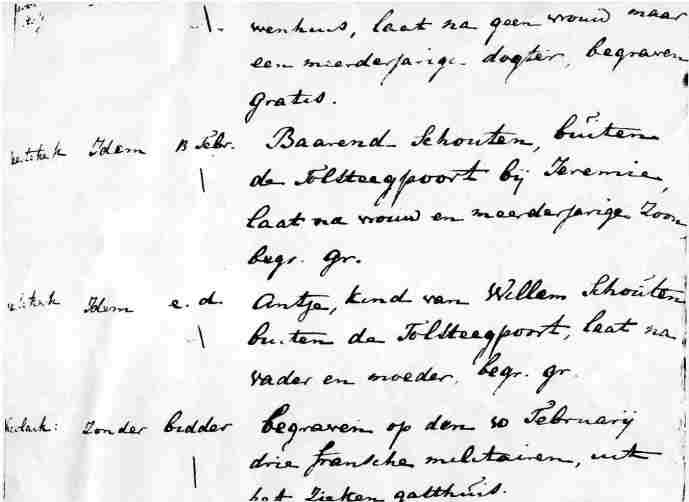 wenhuis, laat na geen vrouw maar
een meerderjarige dogter, begraven
gratis.
Idem 13 Febr. Baarend Schouten, buiten
de Tolsteegpoort bij Jeremie,
laat na vrouw en meerderjarige Zoon
begr. gr.
Idem e. d. Antje, kind van Willem Schouten
buiten de Tolsteegpoort, laat na
vader en moeder, begr. gr.
Zonder bidder begraven op den 10 Februarij
drie fransche militairen, uit
het Zieken gasthuis.